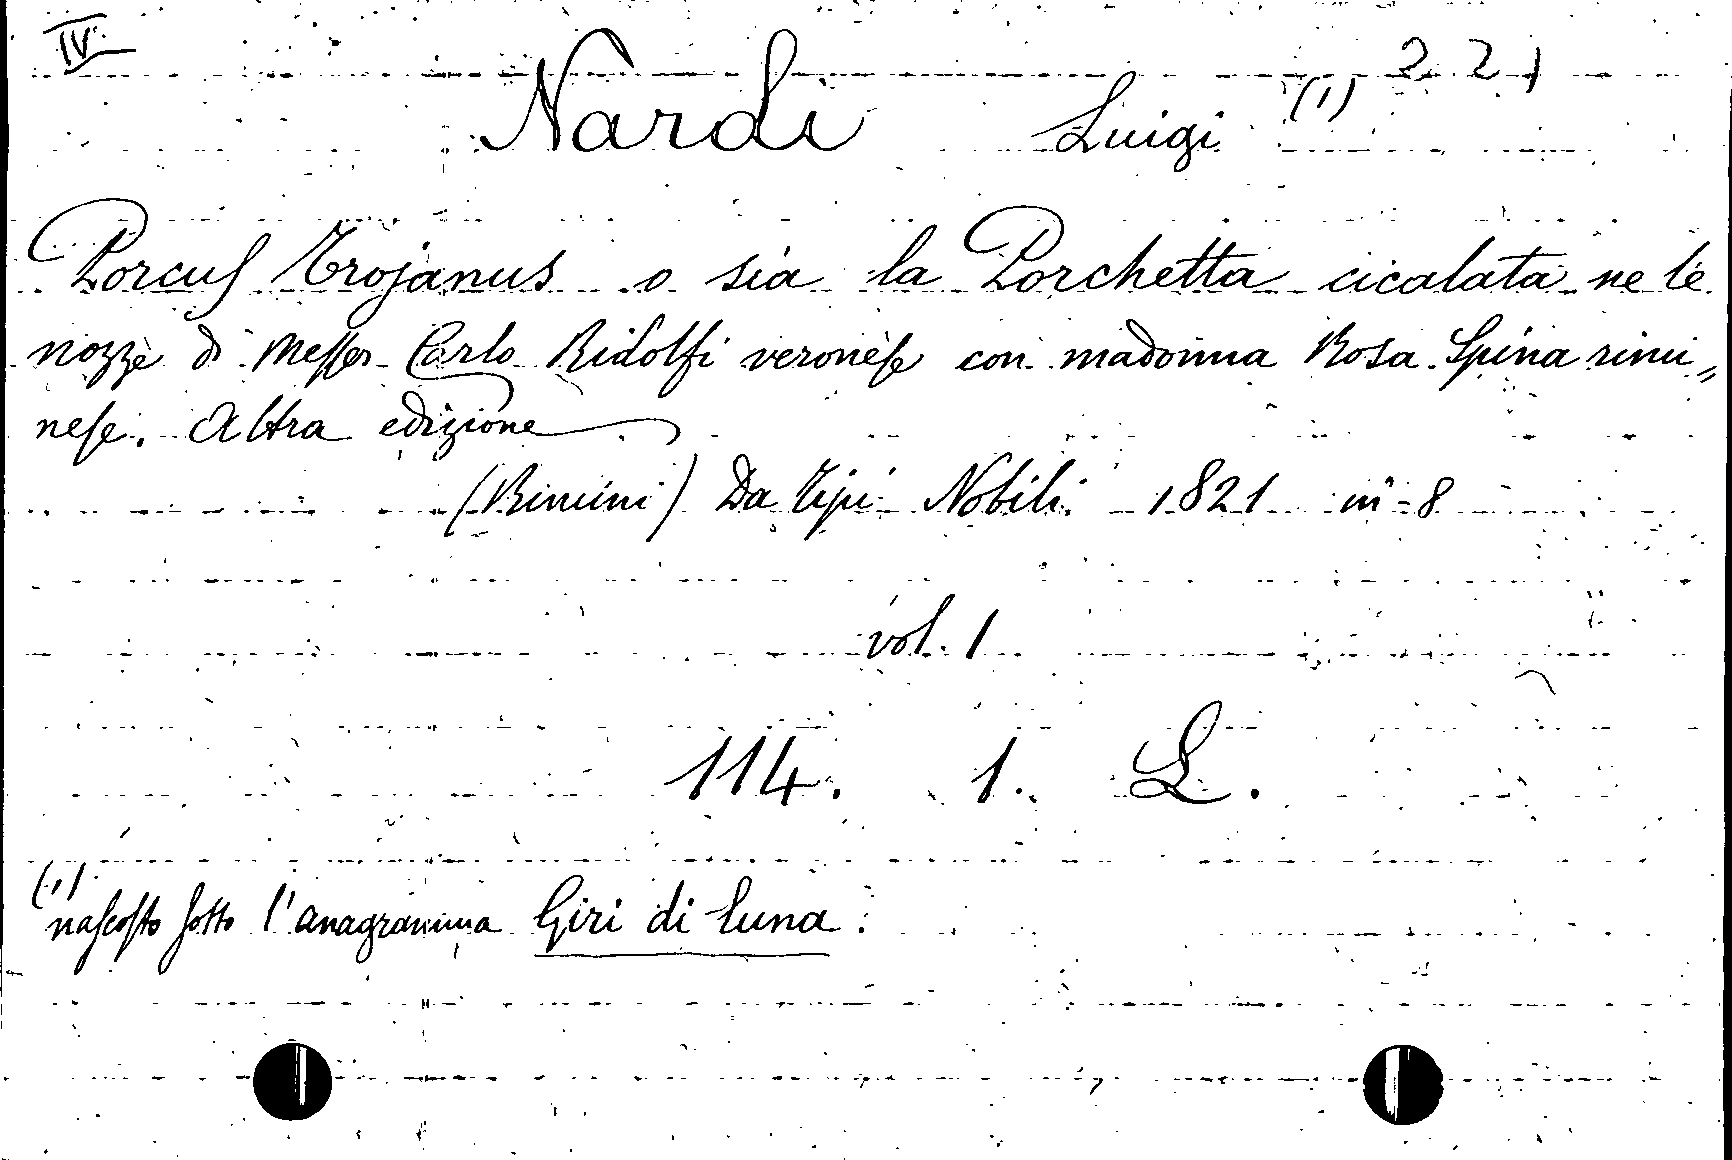 IV 221
Nardi Luigi (1)
Porcus Trojanus o sia la Porchetta cicalata ne le
nozze di Messer Carlo Ridolfi veronese con madonna Rosa Spina rimi„
nese. Altra edizione
(Rimini) Da Tipi Nobili 1821 in-8
vol. 1
114. 1. L.
(1) nascosto sotto l'anagramma Giri di Luna.